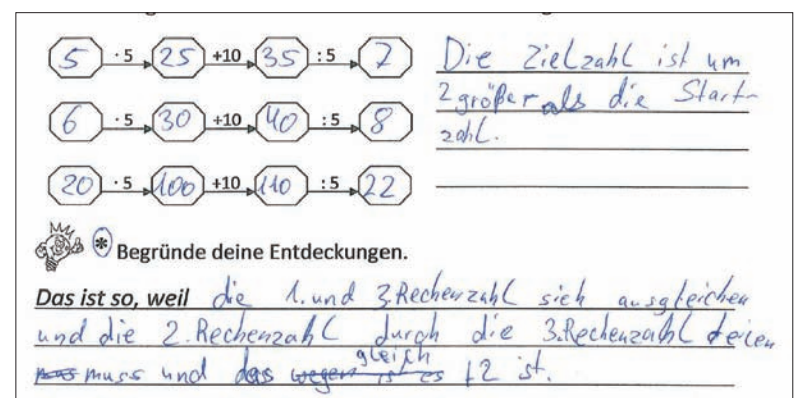 5 · 5 25 +10 35 : 5 7
6 · 5 30 +10 40 : 5 8
20 · 5 100 +10 110 : 5 22
Die Zielzahl ist um
2 größer als die Start-
zahl.
* Begründe deine Entdeckungen.
Das ist so, weil die 1. und 3. Rechenzahl sich ausgleichen
und die 2. Rechenzahl durch die 3. Rechenzahl teilen
gleich
muss und das wegen ist es +2 ist.